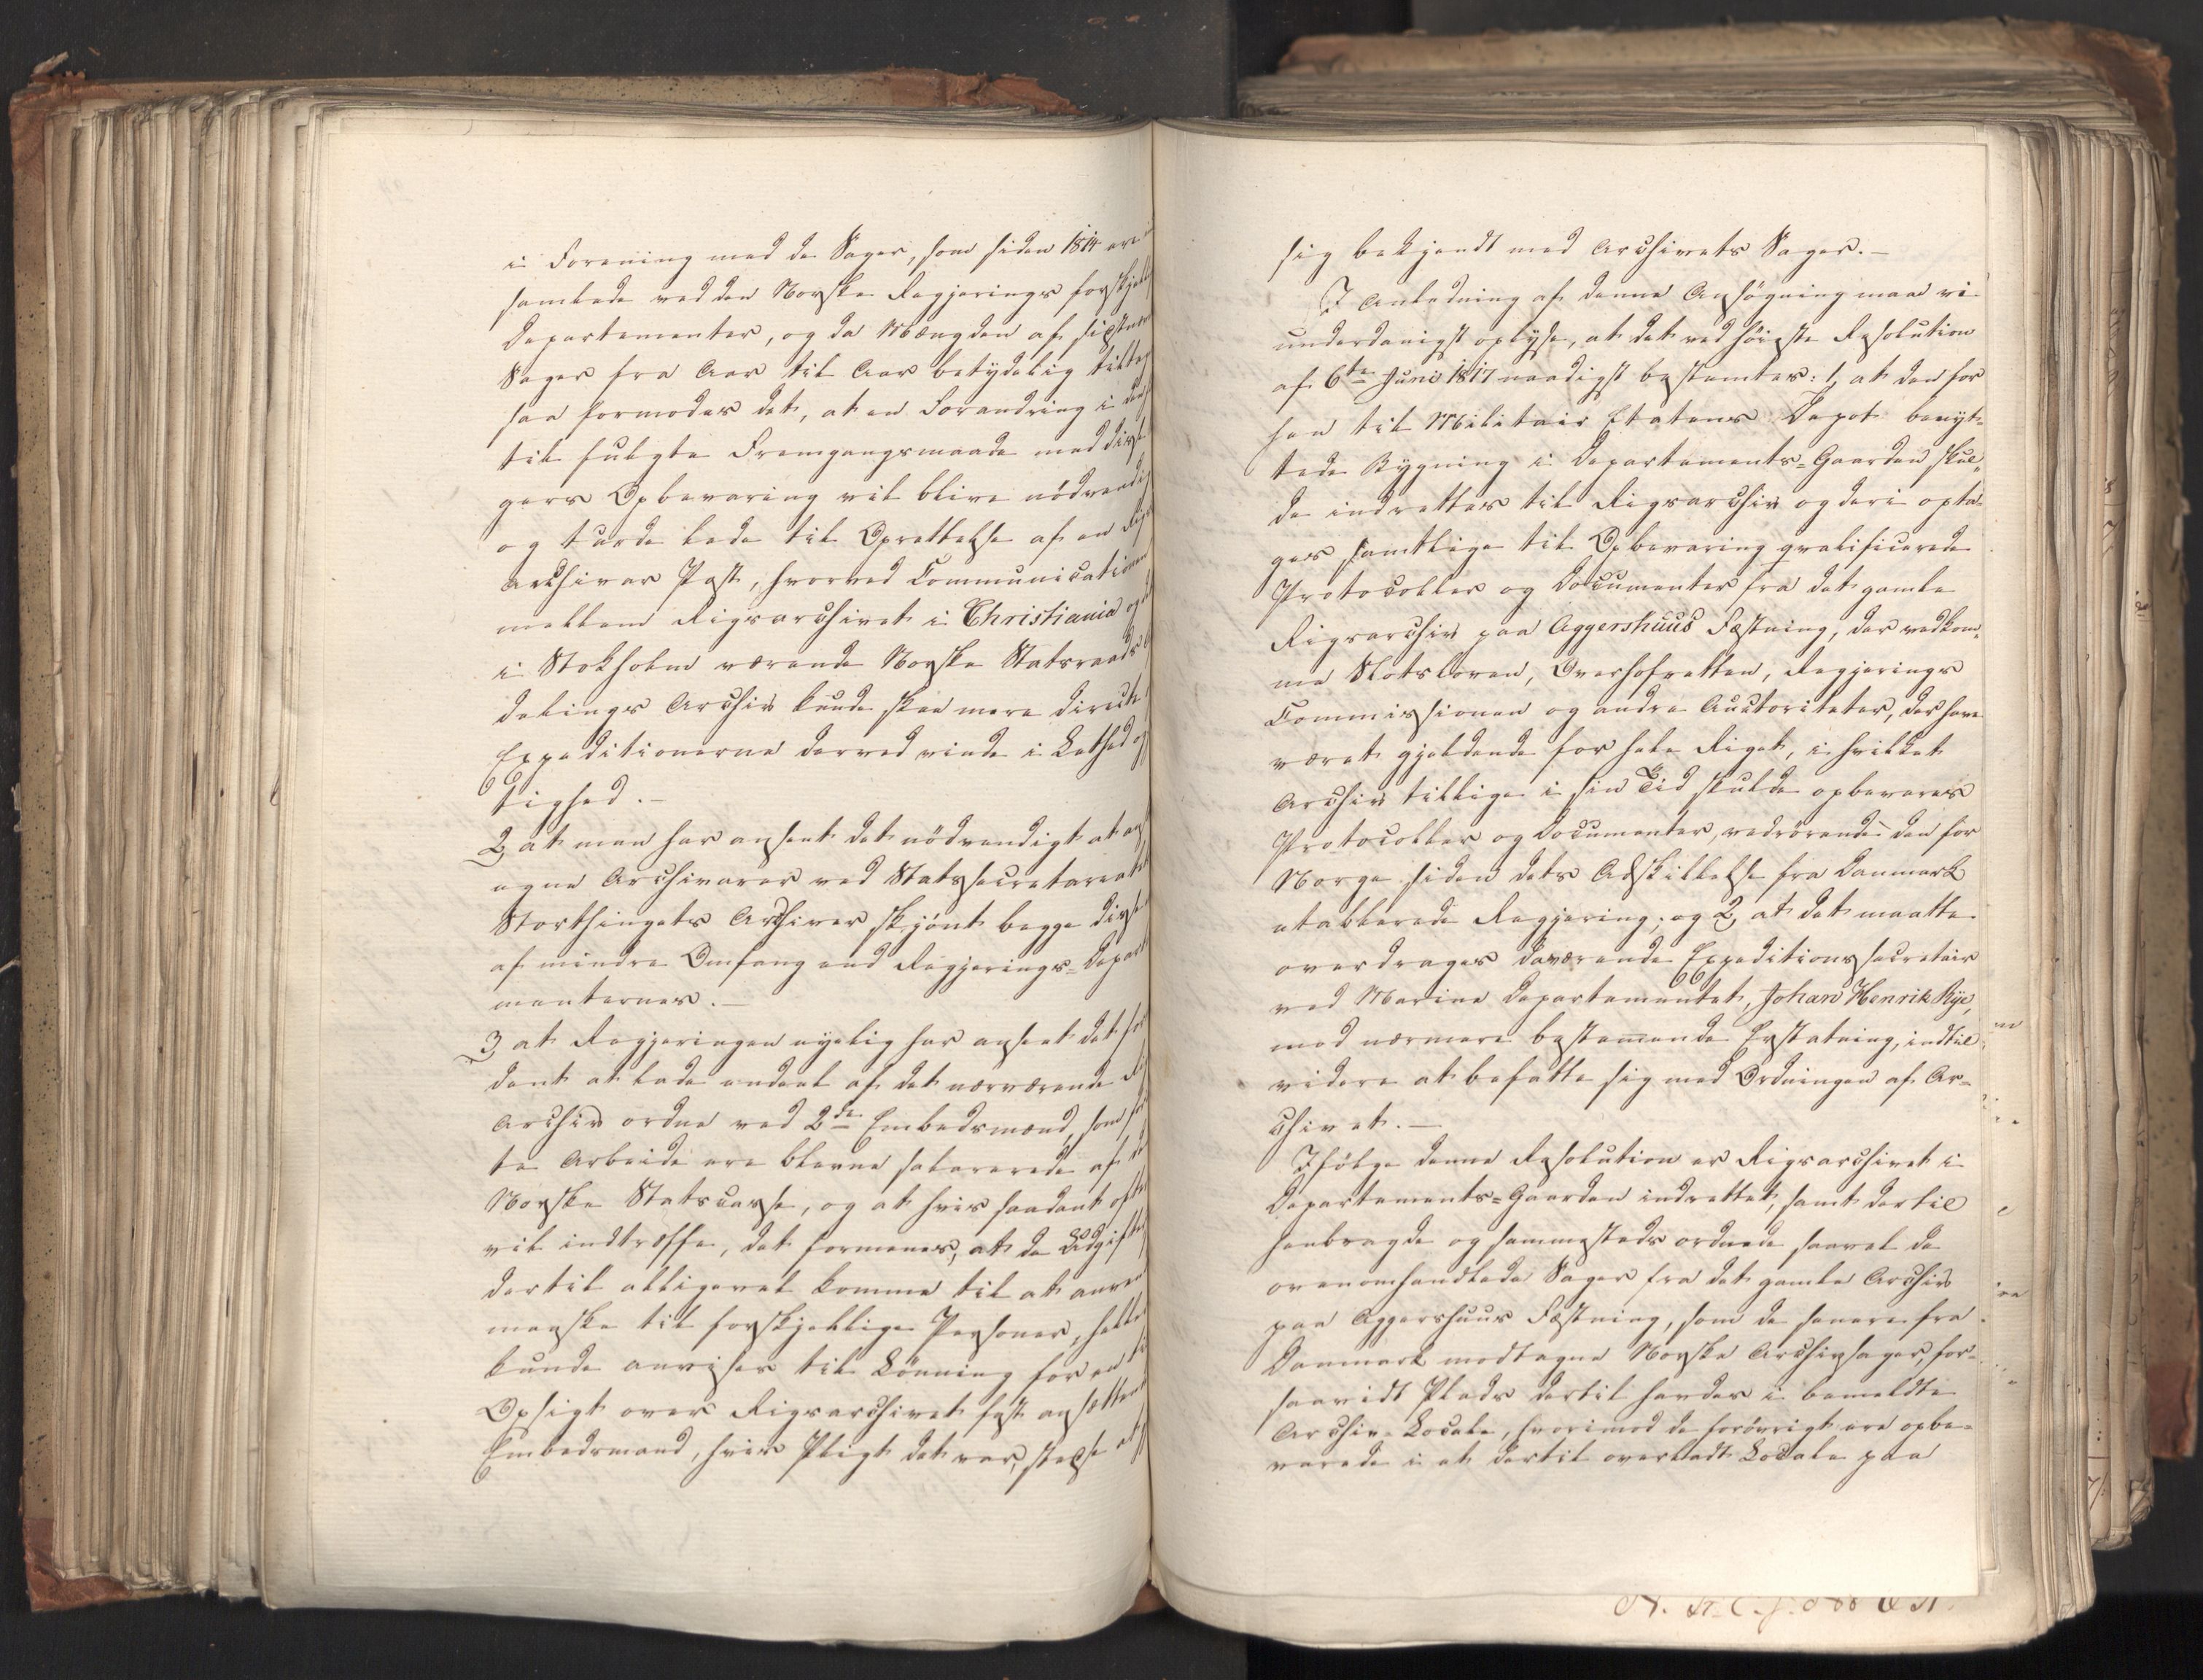 i Forening med de Sager, som siden 1814 ere
samlede ved den Norske Regjerings forskjel
Departementer, og da Mængden af sidstnæv
Sager fra Aar til Aar betydelig tiltag
saa formodes det, at en Forandring i den
til fulgte Fremgangsmaade med diss
gers Opbevaring vil blive nödvendig
og turde lede til Oprettelse af en Rigs
archivar Post, hvorved Communicationen
mellem Rigsarchivet i Christiania og
i Stokholm værende Norske Statsraads
delings Archiv kunde skee mere directe
Expeditionerne derved vinde i Lethed og
tighed.-
2, at man har anseet det nödvendigt at an
egne Archivarer ved Statssecretariatet
Storthingets Archiver skjönt begge disse
af mindre Omfang end Regjerings=Depart
menternes.-
3, at Regjeringen nyelig har anseet det for
dent at lade endeel af det nærværende Ri
Archiv ordne ved 2de Embedsmænd, som
te Arbeide ere blevne salarerede af
Norske Statscasse, og at hvis saadant ofte
vil indtræffe, det formenes, at de Udgifter
dertil alligevel komme til at anven
maaske til forskjellige Personer, hell
kunde anvises til Lönning for en
Opsigt over Rigsarchivet fast ansætten
Embedsmand, hvis Pligt det var, stedse at
sig bekjendt med Archivets Sager.-
I Anledning af denne Ansögning maae vi
underdanigst oplyse, at det ved höieste Resolution
af 6te Juni 1817 naadigst bestemtes: 1, at den for
hen til Militair Etatens Depot benyt=
tede Bygning i Departements=Gaarden skul=
de indrettes til Rigsarchiv og deri opta=
ges samtlige til Opbevaring qvalificerede
Protocoller og Documenter fra det gamle
Rigsarchiv paa Aggershuus Fæstning, der vedkom=
me Slotsloven, Overhofretten, Regjerings
Commissionen og andre Auctoriteter, der have
været gjeldende for hele Riget, i hvilket
Archiv tillige i sin Tid skulde opbevares
Protocoller og Documenter, vedrörende den for
Norge siden dets Adskillelse fra Danmark
etablerede Regjering; og 2, at det maatte
overdrages daværende Expeditionssecretair
ved Marine Departementet, Johan Henrik Rye,
mod nærmere bestemmende Erstatning, indtil
videre at befatte sig med Ordningen af Ar=
chivet.-
Ifölge denne Resolution er Rigsarchivet i
Departements=Gaarden indrettet, samt dertil
henbragde og sammesteds ordnede saavel de
ovenomhandlede Sager fra det gamle Archiv
paa Aggershuus Fæstning, som de senere fra
Danmark modtagne Norske Archivsager, for=
saavidt Plads dertil havdes i bemeldte
Archiv=Locale, hvorimod de forövrigt ere opbe=
varede i et dertil overladt Locale paa